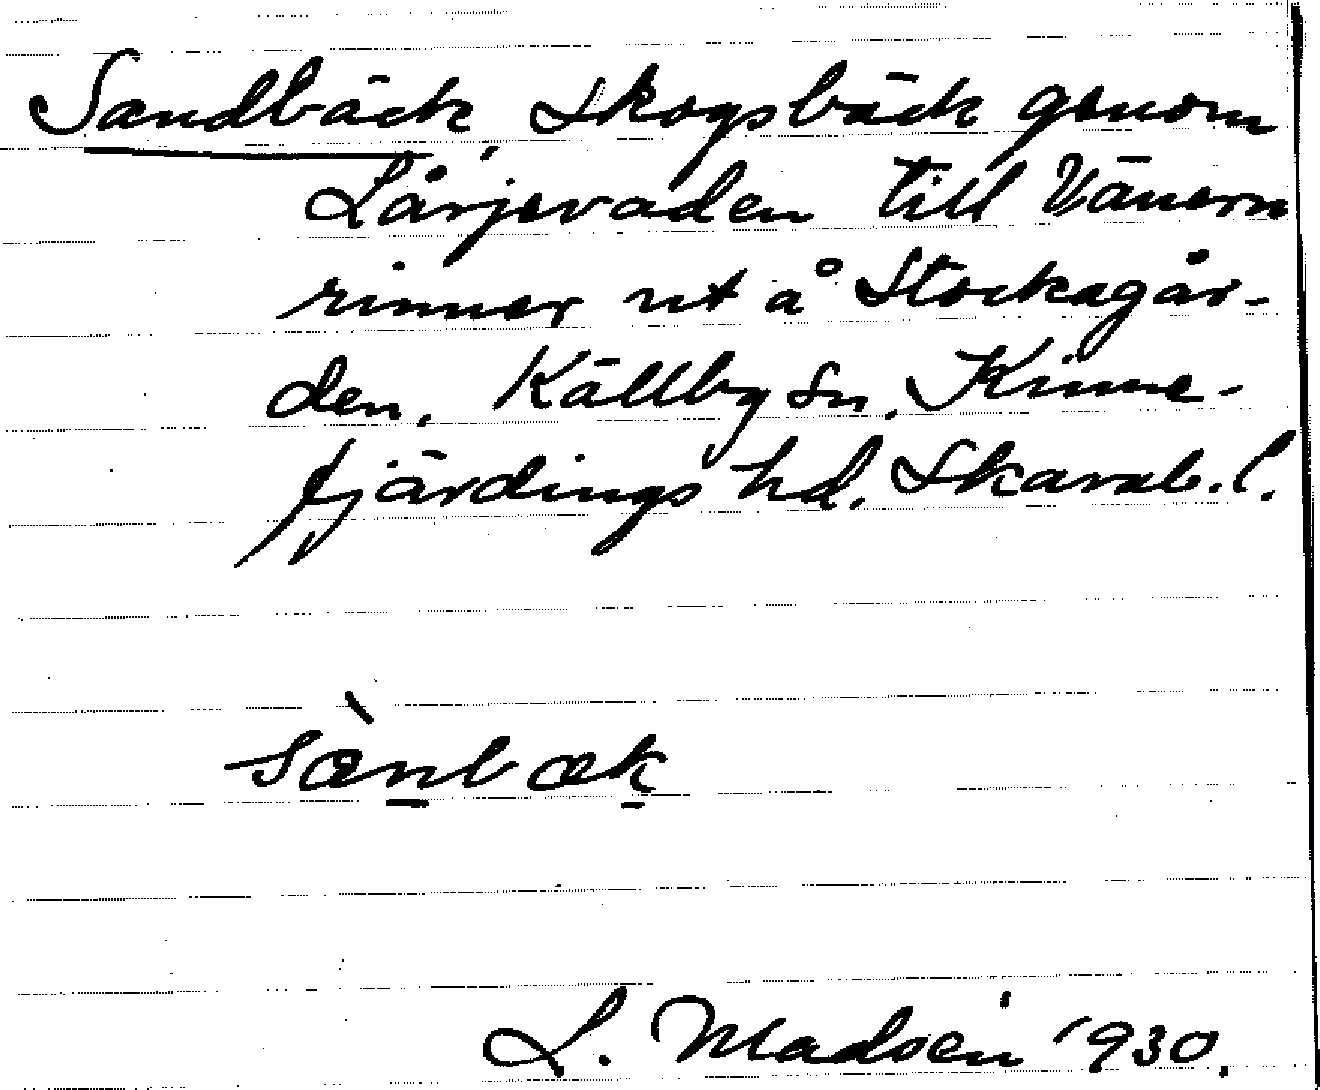 Sandbäck, Skogsbäck genom
Lårjevaden till Vänern
rinner ut å Stockagår-
den, Källby sn, Kinne-
fjärdings hd. Skarab. l.
sæ̀nbæk
L. Madsén 1930.